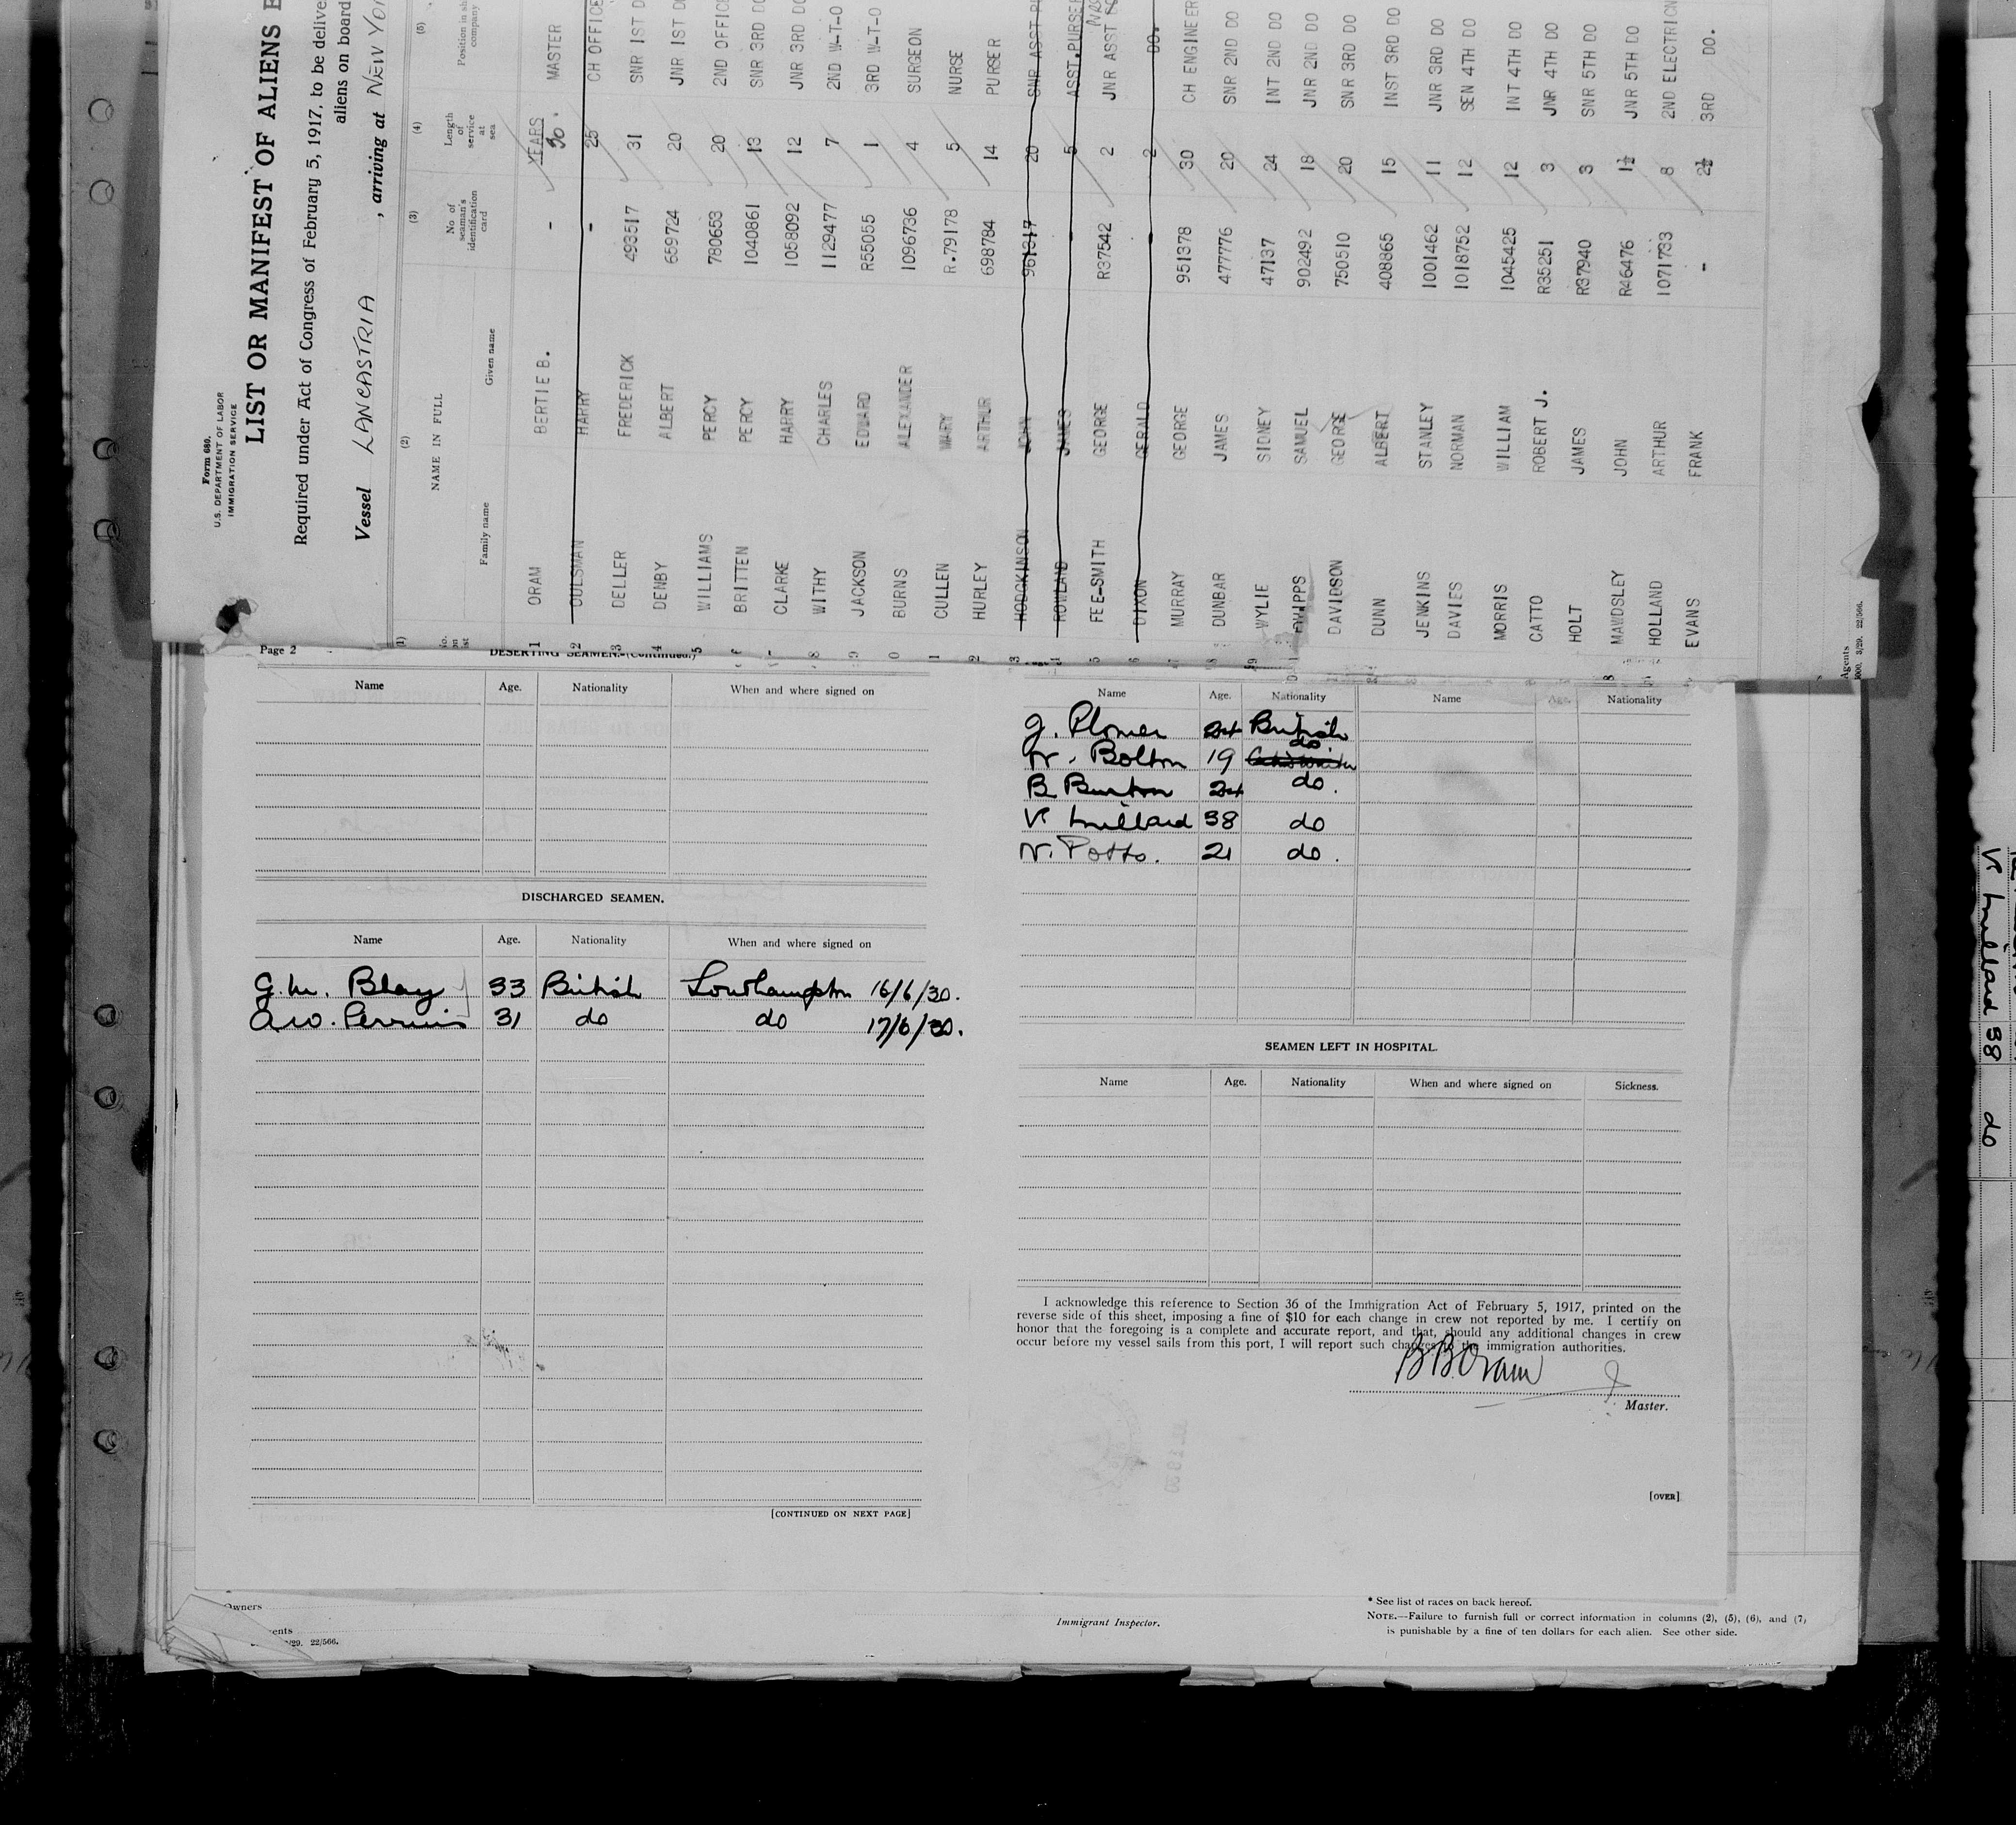 Form 680.
U.S. DEPARTMENT OF LABOR
IMMIGRATION SERVICE
LIST OR MANIFEST OF ALIENS
Required under Act of Congress of February 5, 1917, to be
aliens on board
Vessel LANCASTRIA , arriving at NEW
(1) (2) (3) (4) (5)
NAME IN FULL
Family name Given name
No of seaman's identification card
Length of service at sea
Position in
company
YEARS
1 ORAM BERTIE B. - 30 MASTER
2 OULSMAN HARRY - 25 CH OFFICE
3 DELLER FREDERICK 493517 31 SNR 1ST
4 DENBY ALBERT 659724 20 JNR 1ST
5 WILLIAMS PERCY 780653 20 2ND OFFICE
BRITTEN PERCY 1040861 13 SNR 3RD
CLARKE HARRY 1058092 12 JNR 3RD
8 WITHY CHARLES 1129477 7 2ND W-T-O
9 JACKSON EDWARD R55055 1 3RD W-T-O
0 BURNS ALEXANDER 1096736 4 SURGEON
1 CULLEN MARY R.79178 5 NURSE
2 HURLEY ARTHUR 698784 14 PURSER
3 HODGKINSON JOHN 951317 20 SNR ASST
4 ROWLAND JAMES - 5 ASST.PURSER
5 FEE-SMITH GEORGE R37542 2 JNR ASST
6 DIXON GERALD - 2 DO.
MURRAY GEORGE 951378 30 CH ENGINEER
8 DUNBAR JAMES 477776 20 SNR 2ND DO
19 WYLIE SIDNEY 47137 24 INT 2ND DO
PHIPPS SAMUEL 902492 18 JNR 2ND DO
DAVIDSON GEORGE 750510 20 SNR 3RD DO
DUNN ALBERT 408865 15 INST 3RD DO
JENKINS STANLEY 1001462 11 JNR 3RD DO
DAVIES NORMAN 1018752 12 SEN 4TH DO
MORRIS WILLIAM 1045425 12 INT 4TH DO
CATTO ROBERT J. R35251 3 JNR 4TH DO
HOLT JAMES R37940 3 SNR 5TH DO
MAWDSLEY JOHN R46476 1½ JNR 5TH DO
HOLLAND ARTHUR 1071733 8 2ND ELECTRICIN
EVANS FRANK - 2½ 3RD DO.
Agents
3/29. 22/566.
Page 2
DESERTING SEAMEN.-(Continued.)
Name Age. Nationality When and where signed on
DISCHARGED SEAMEN.
Name Age. Nationality When and where signed on
G.M. Blay 33 British Southampton 16/6/30.
A.W. Perruis 31 do do 17/6/30.
[CONTINUED ON NEXT PAGE]
Name Age. Nationality Name Age. Nationality
G. Plomer 24 British
W. Bolton 19 do
B Burton 24 do.
V. Millard 38 do
N. Potts. 21 do.
SEAMEN LEFT IN HOSPITAL.
Name Age. Nationality When and where signed on Sickness.
I acknowledge this reference to Section 36 of the Immigration Act of February 5, 1917, printed on the
reverse side of this sheet, imposing a fine of $10 for each change in crew not reported by me. I certify on
honor that the foregoing is a complete and accurate report, and that, should any additional changes in crew
occur before my vessel sails from this port, I will report such changes to the immigration authorities.
B.B.Oram
Master.
[OVER]
Owners
Immigrant Inspector.
* See list of races on back hereof.
NOTE.—Failure to furnish full or correct information in columns (2), (5), (6), and (7)
is punishable by a fine of ten dollars for each alien. See other side.
22/566.
V. Millard 38 do